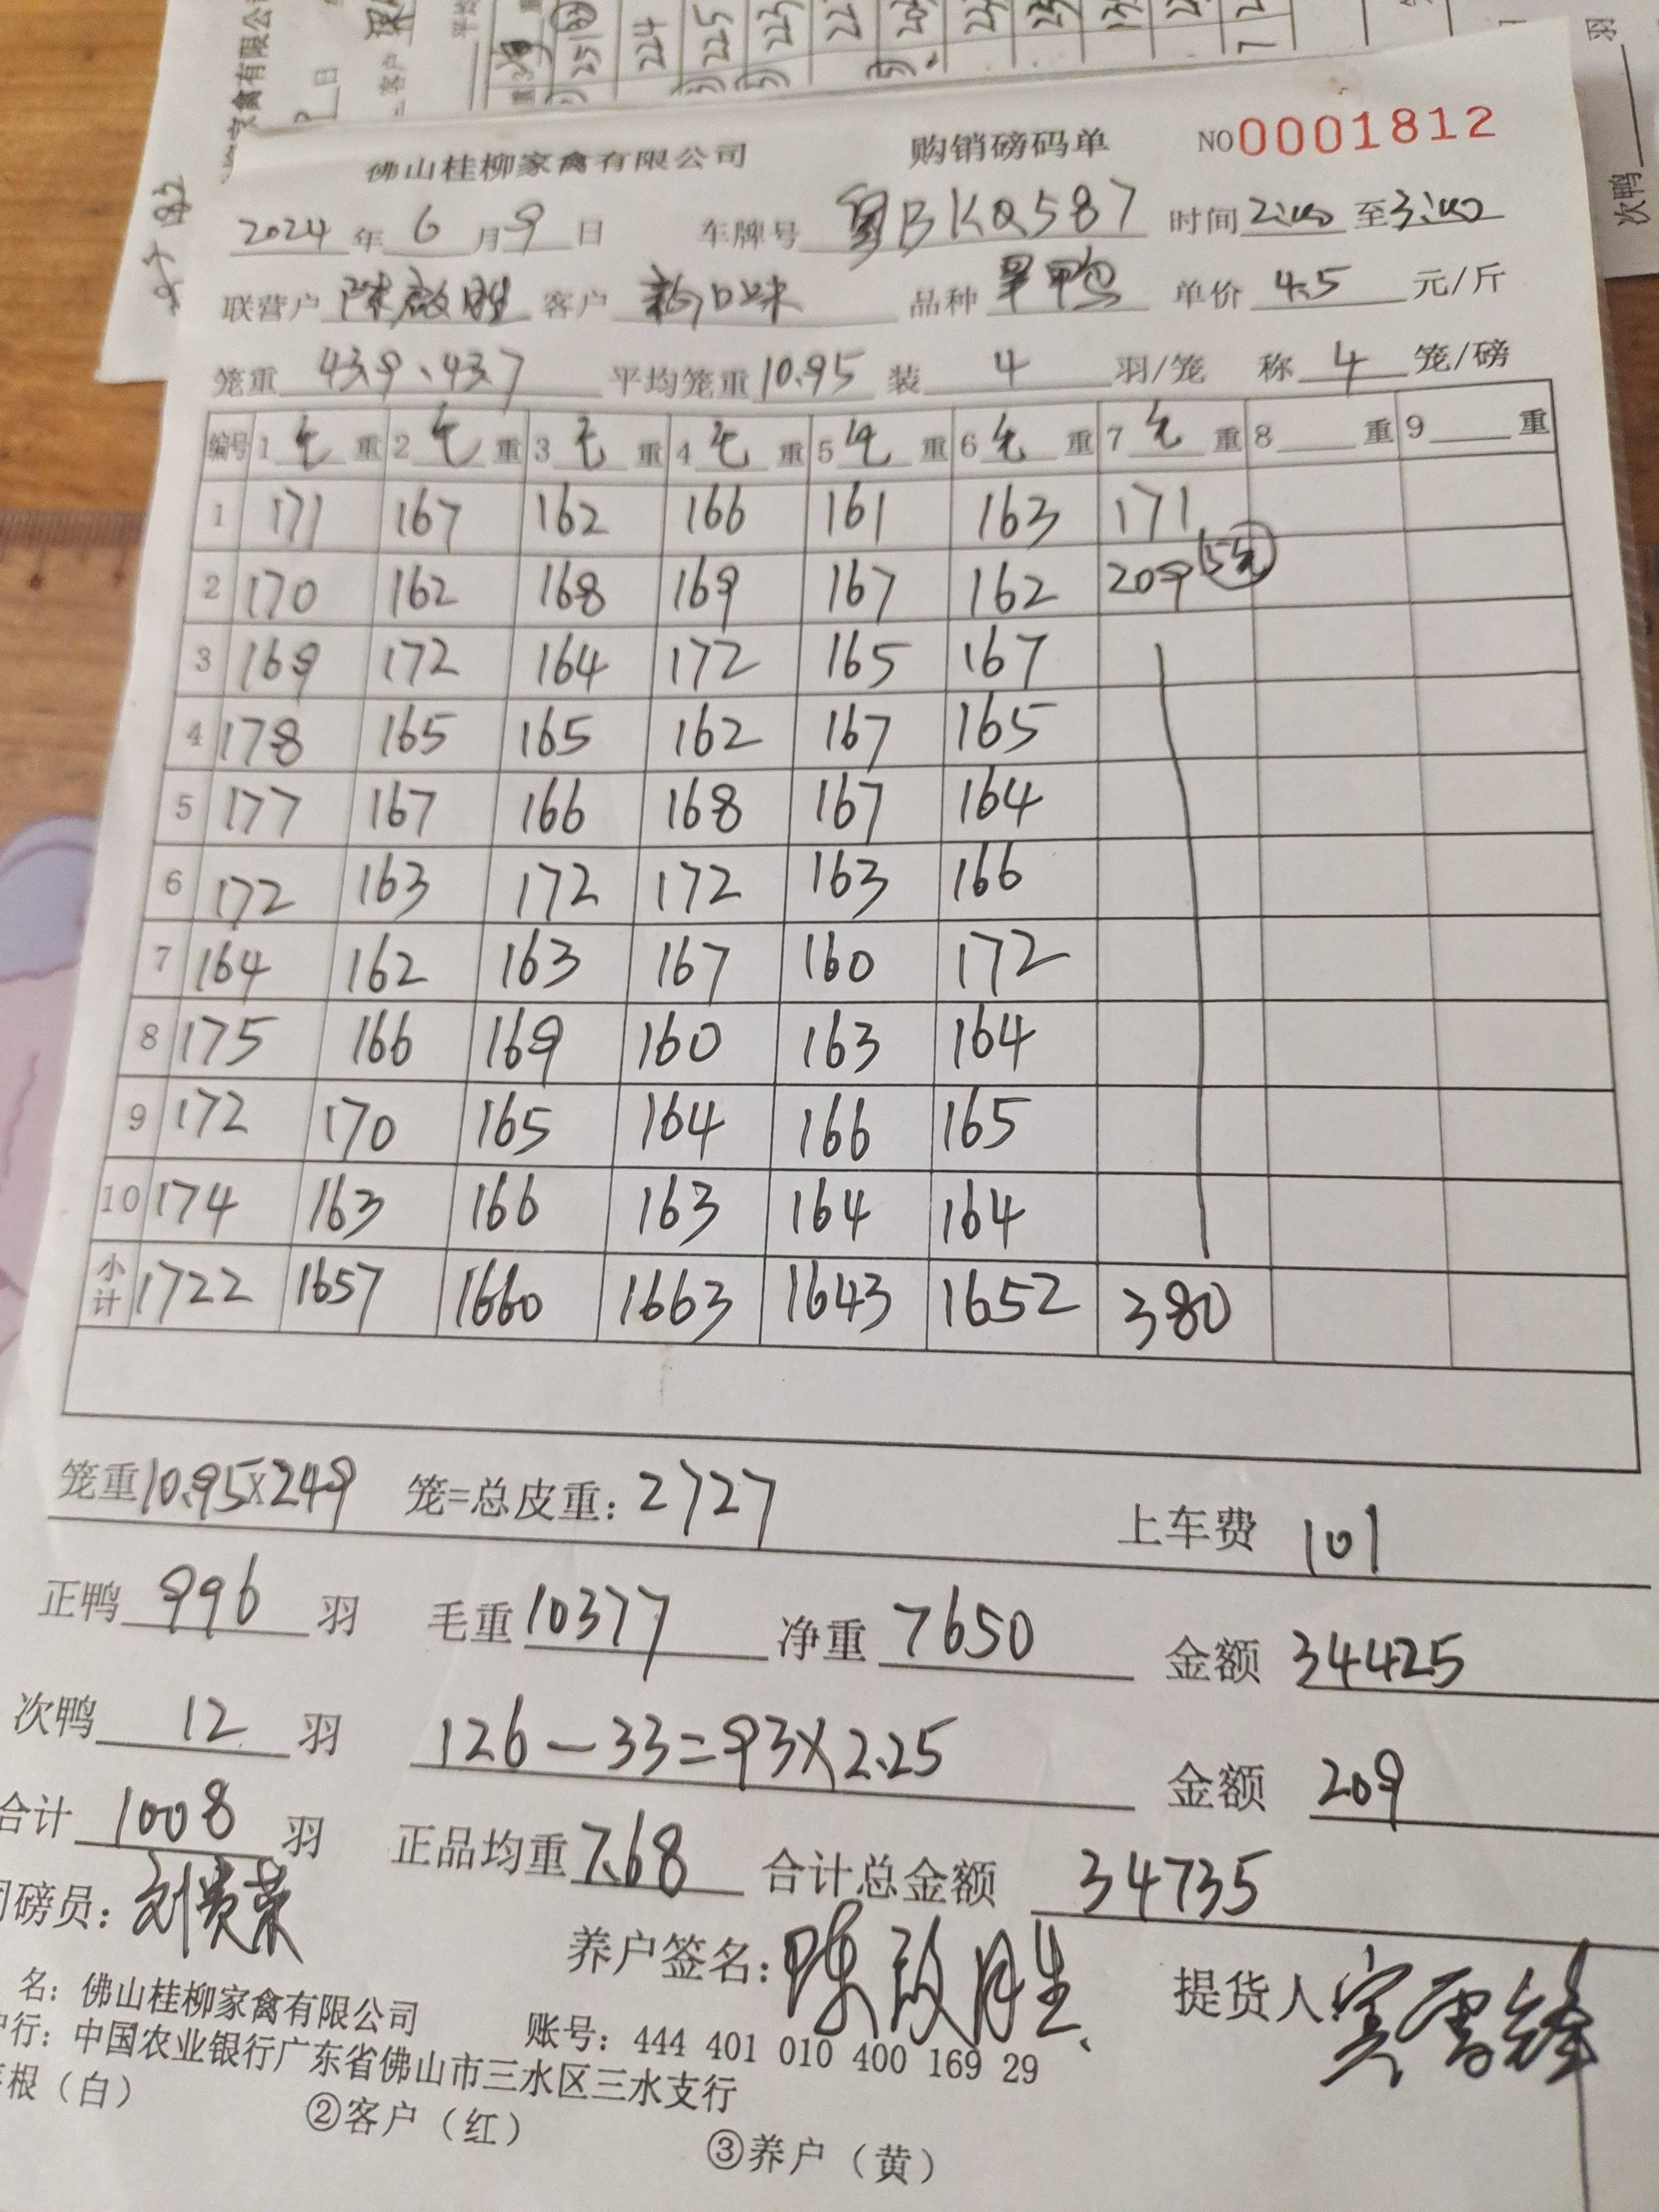 佛山桂柳家禽有限公司 购销磅码单 NO 0001812
2024 年 6 月 9 日 车牌号 粤BKQ587 时间 2:00 至 3:00
联营户 陈啟胜 客户 新口味 品种 旱鸭 单价 4.5 元/斤
笼重 43.9、43.7 平均笼重 10.95 装 4 羽/笼 称 4 笼/磅
编号 1 毛 重 2 毛 重 3 毛 重 4 毛 重 5 毛 重 6 毛 重 7 毛 重 8 重 9 重
1 171 167 162 166 161 163 171
2 170 162 168 169 167 162 209 5笼
3 169 172 164 172 165 167
4 178 165 165 162 167 165
5 177 167 166 168 167 164
6 172 163 172 172 163 166
7 164 162 163 167 160 172
8 175 166 169 160 163 164
9 172 170 165 164 166 165
10 174 163 166 163 164 164
小计 1722 1657 1660 1663 1643 1652 380
笼重 10.95×249 笼=总皮重: 2727 上车费 101
正鸭 996 羽 毛重 10377 净重 7650 金额 34425
次鸭 12 羽 126-33=93×2.25 金额 209
合计 1008 羽 正品均重 7.68 合计总金额 34735
司磅员: 刘贵荣 养户签名: 陈啟胜 提货人
名: 佛山桂柳家禽有限公司 账号: 444 401 010 400 169 29
行: 中国农业银行广东省佛山市三水区三水支行
根（白） ②客户（红） ③养户（黄）